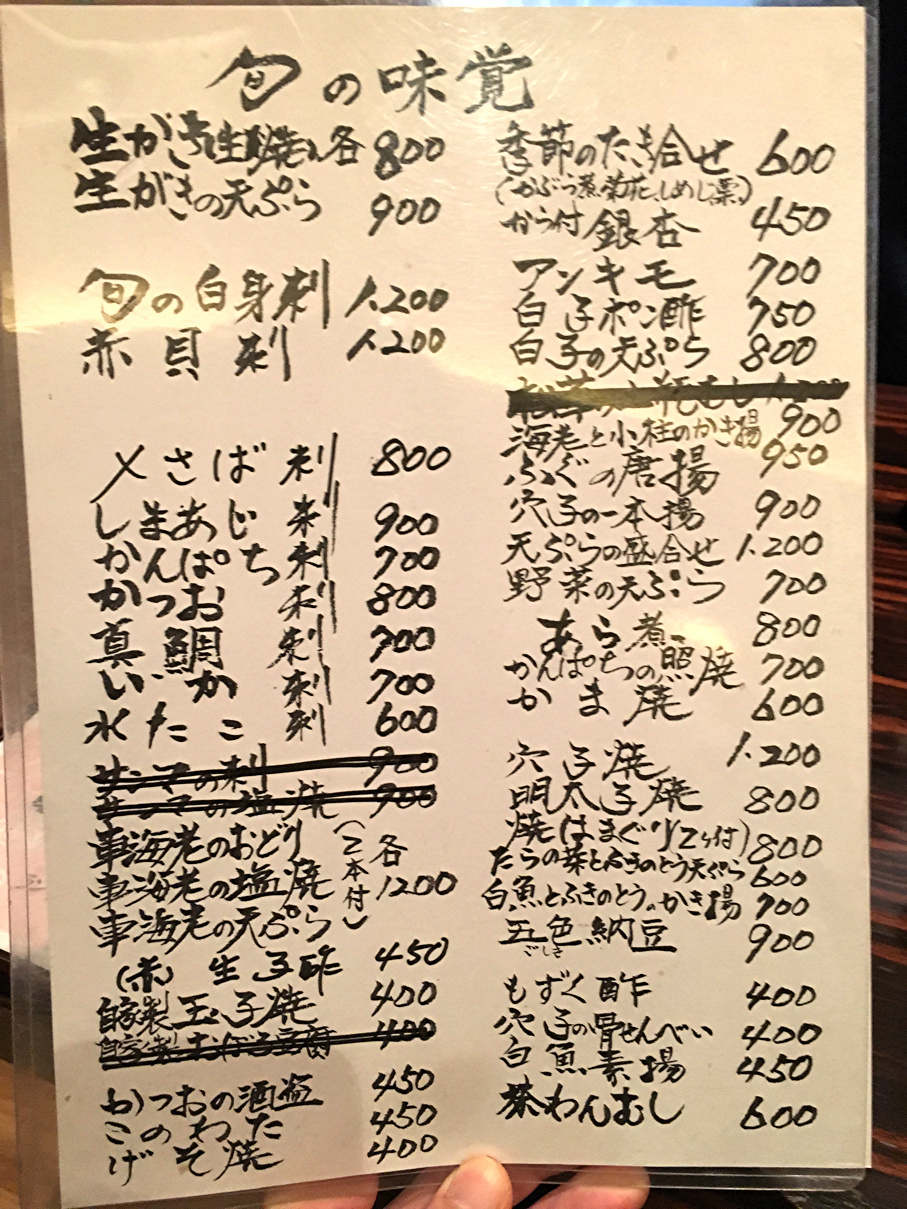 旬の味覚
生がき(生、焼)各 800
生がきの天ぷら 900
旬の白身刺 1.200
赤貝刺 1.200
〆さば刺 800
しまあじ刺 900
かんぱち刺 700
かつお刺 800
真鯛刺 700
いか刺 700
水たこ刺 600
サンマの刺 900
サンマの塩焼 900
車海老のおどり
車海老の塩焼 (2本付) 各1200
車海老の天ぷら
(赤)生子酢 450
自家製玉子焼 400
自家製おぼろ豆腐 400
かつおの酒盗 450
このわた 450
げそ焼 400
季節のたき合せ 600
(かぶら煮、菊花、しめじ、栗)
から付銀杏 450
アンキモ 700
白子ポン酢 750
白子の天ぷら 800
松茸の土瓶むし 1.200
海老と小柱のかき揚 900
ふぐの唐揚 950
穴子の一本揚 900
天ぷらの盛合せ 1.200
野菜の天ぷら 700
あら煮 800
かんぱちの照焼 700
かま焼 600
穴子焼 1.200
明太子焼 800
焼はまぐり(2ヶ付) 800
たらの芽とふきのとう天ぷら 600
白魚とふきのとうのかき揚 700
五色納豆 900
ごしき
もずく酢 400
穴子の骨せんべい 400
白魚素揚 450
茶わんむし 600